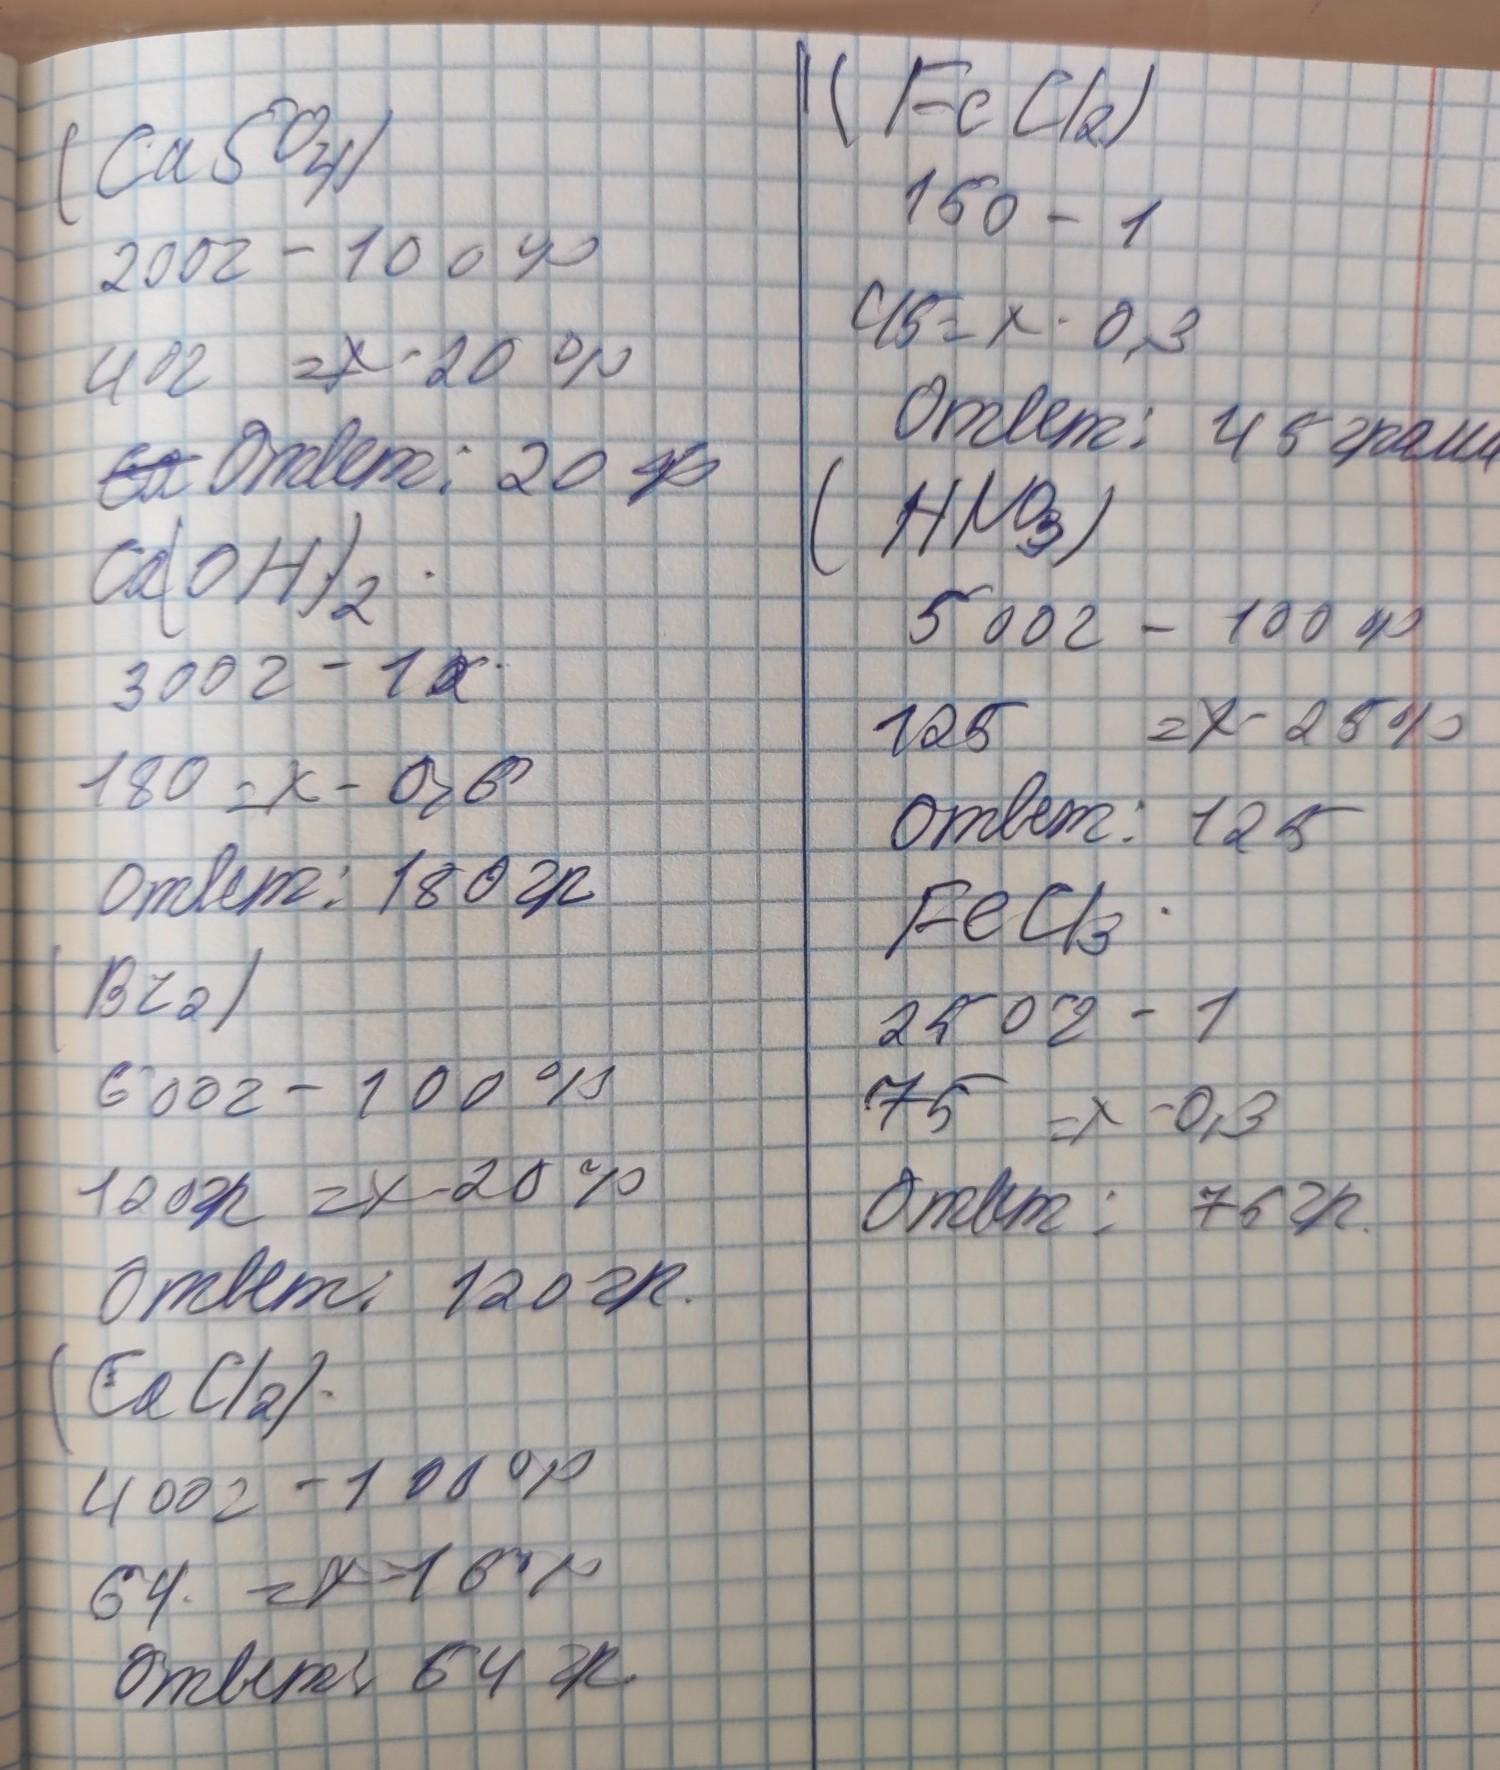 (CaSO4)
200г - 100%
40г = x - 20%
Ответ: 20 гр
Ca(OH)2.
300г - 1
180 = x - 0,6
Ответ: 180 гр
(Br2)
600г - 100%
120гр = x - 20%
Ответ: 120 гр.
(CaCl2).
400г - 100%
64. = x - 16%
Ответ: 64 гр.
(FeCl2)
150 - 1
45 = x - 0,3
Ответ: 45 грамм
(HNO3)
500г - 100%
125 = x - 25%
Ответ: 125
FeCl3.
250г - 1
75 = x - 0,3
Ответ: 75 гр.